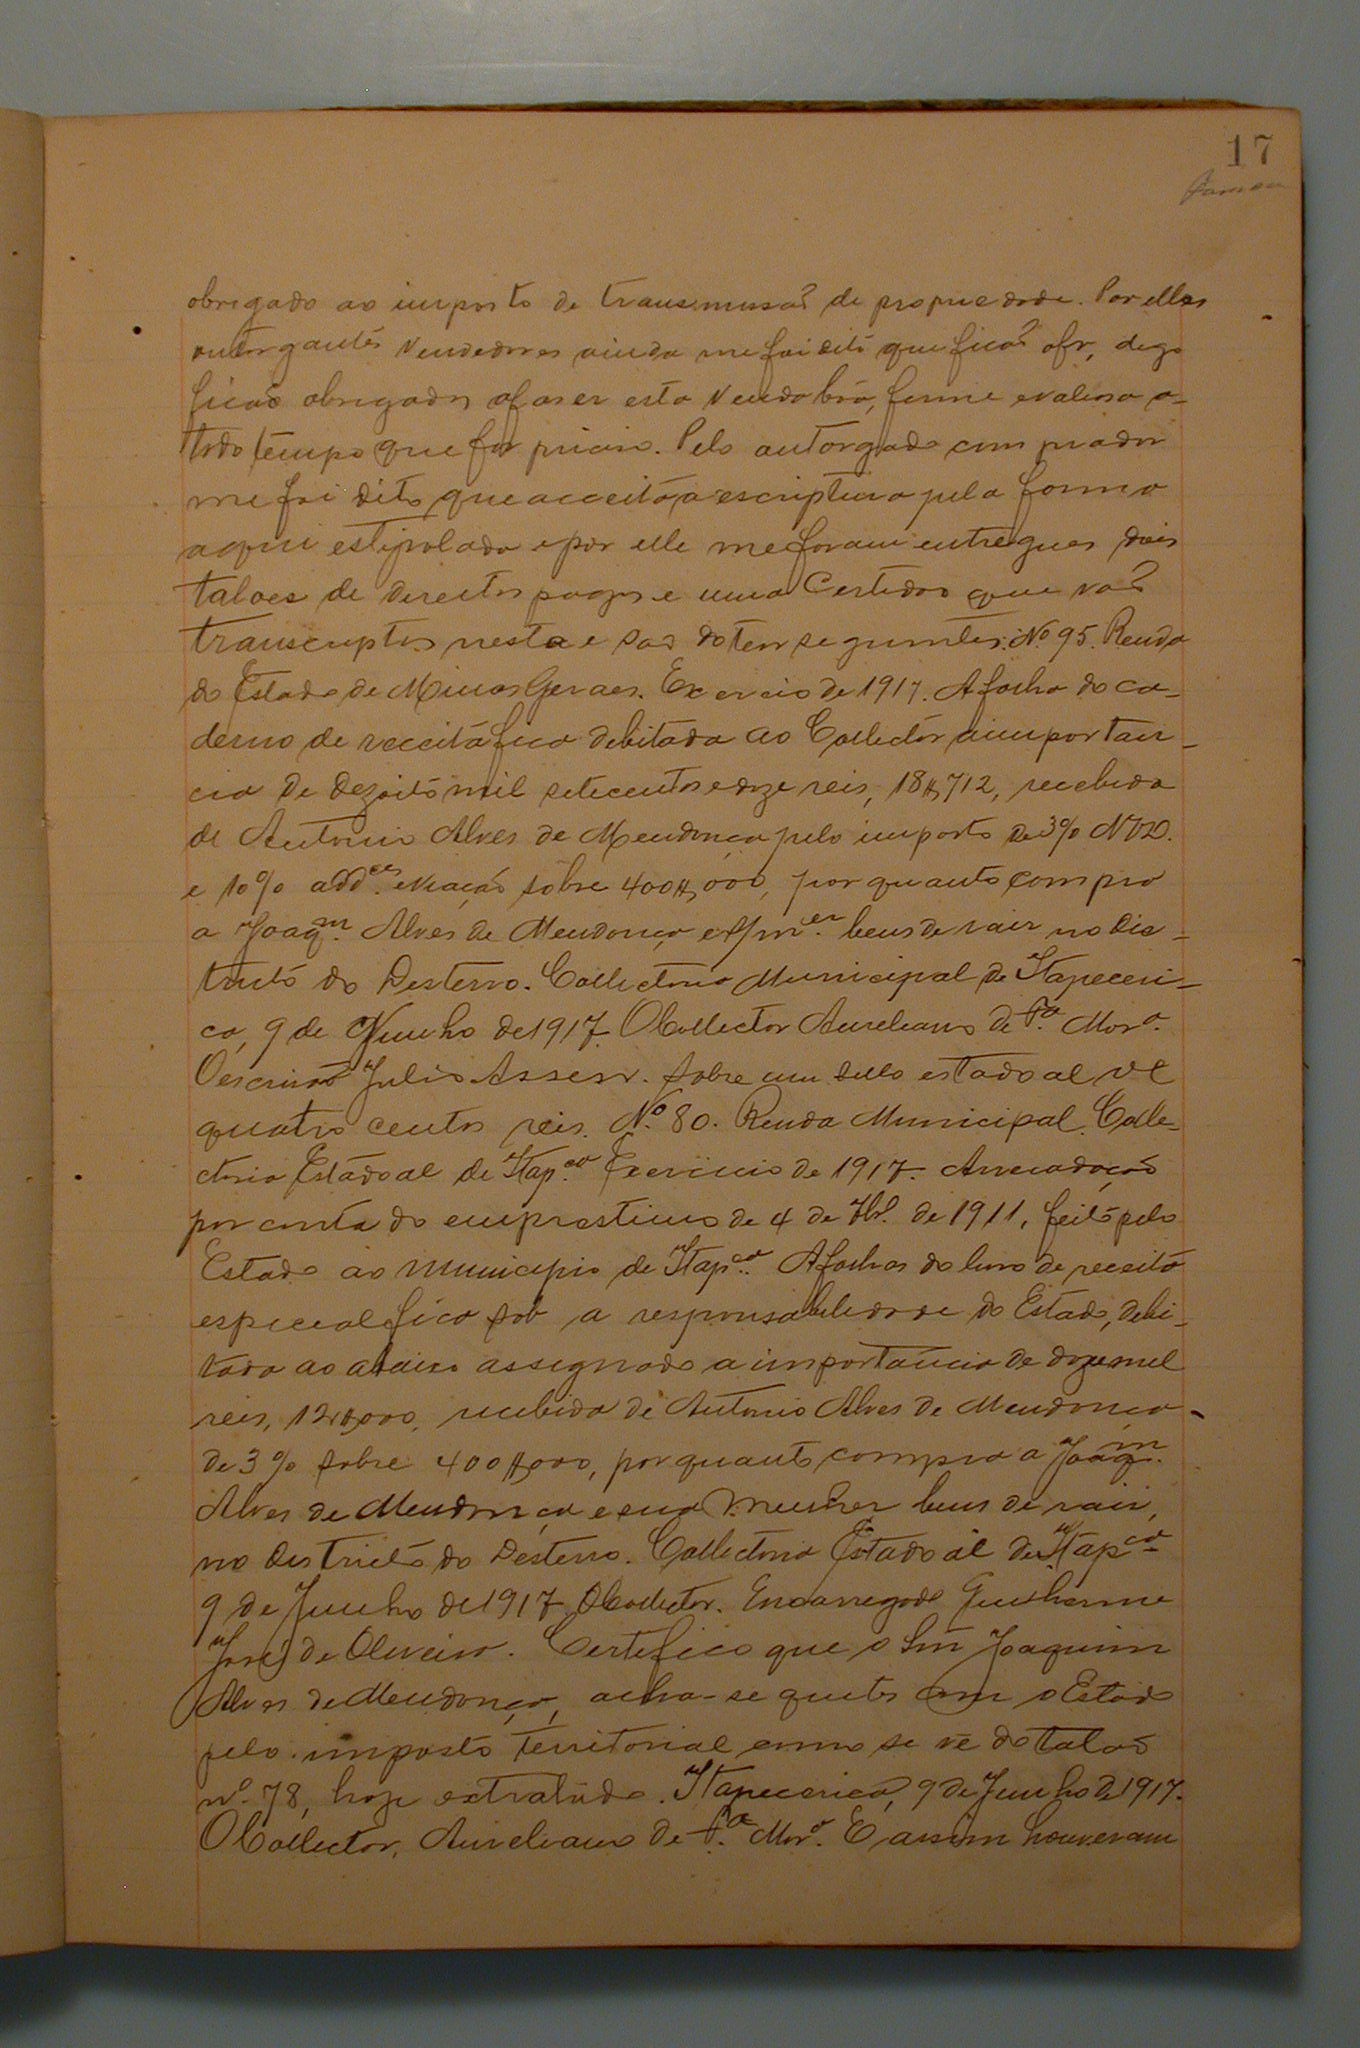 17
obrigado ao imposto de transmissaõ de propriedade. Por elles
outorgantes vendedores ainda me foi dito que ficaõ ofr, digo
ficaõ obrigados a faser esta venda bôa, firme e valiosa a-
todo tempo que for preciso. Pelo outorgado comprador
me foi dito que acceita a escriptura pela forma
aqui estipolada e por elle me foram entregues dois
taloes de direitos pagos e uma Certidaõ que vaõ
transcriptos nesta e saõ do teor seguintes: Nº 95. Renda
do Estado de Minas Geraes. Exercicio de 1917. A folha do ca-
derno de receita fica debitada ao Collector a importan-
cia de dezoito mil setecentos e doze reis, 18$712, recebida
de Antonio Alves de Mendonça pelo imposto de 3% N V D.
e 10% add.es e viação sobre 400$000, por quanto comprou
a Joaq.m Alves de Mendonça e s/m.er bens de raiz no Dis-
tricto do Desterro. Collectoria Municipal de Itapeceri-
ca, 9 de Junho de 1917. O Collector Aureliano de F.a Mor.a
O escrivaõ Julio Assesr. Sobre um sello estadoal de
quatro centos reis. Nº 80. Renda Municipal. Colle-
ctoria Estadoal de Itap.ca Exercicio de 1917. Arrecadação
por conta do emprestimo de 4 de 7br.º de 1911, feito pelo
Estado ao Municipio de Itap.ca A folhas do livro de receita
especial fica sob a responsabilidade do Estado, debi-
tada ao abaixo assignado a importancia de doze mil
reis, 12$000, recebida de Antonio Alves de Mendonça
de 3% sobre 400$000, por quanto comprou a Joaq.m
Alves de Mendonça e sua mulher bens de raiz,
no districto do Desterro. Collectoria Estadoal de Itap.ca
9 de Junho de 1917. O Collector. Encarregado Guilherme
José de Oliveira. Certifico que o Snr̃ Joaquim
Alves de Mendonça, acha-se quites com o Estado
pelo imposto territorial como se vê do talaõ
nº 78, hoje extrahido. Itapecerica, 9 de Junho de 1917.
O Collector, Aureliano de F.a Mor.a E assim houveram